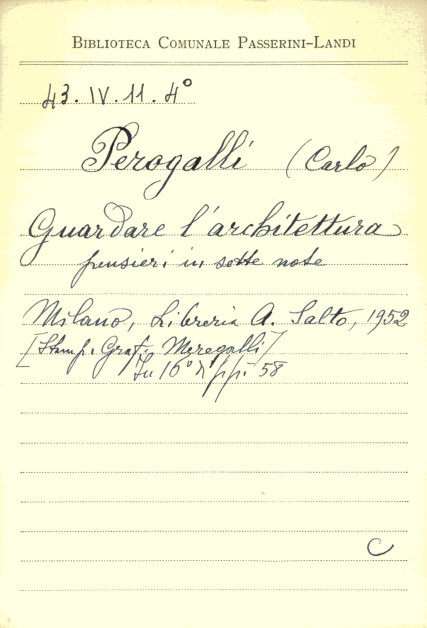 BIBLIOTECA COMUNALE PASSERINI-LANDI
43. IV. 11. 4°
Perogalli (Carlo)
Guardare l'architettura
pensieri in sette note
Milano, Libreria A. Salto, 1952
[Stamp. Graf. Meregalli]
In 16° pp. 58
C